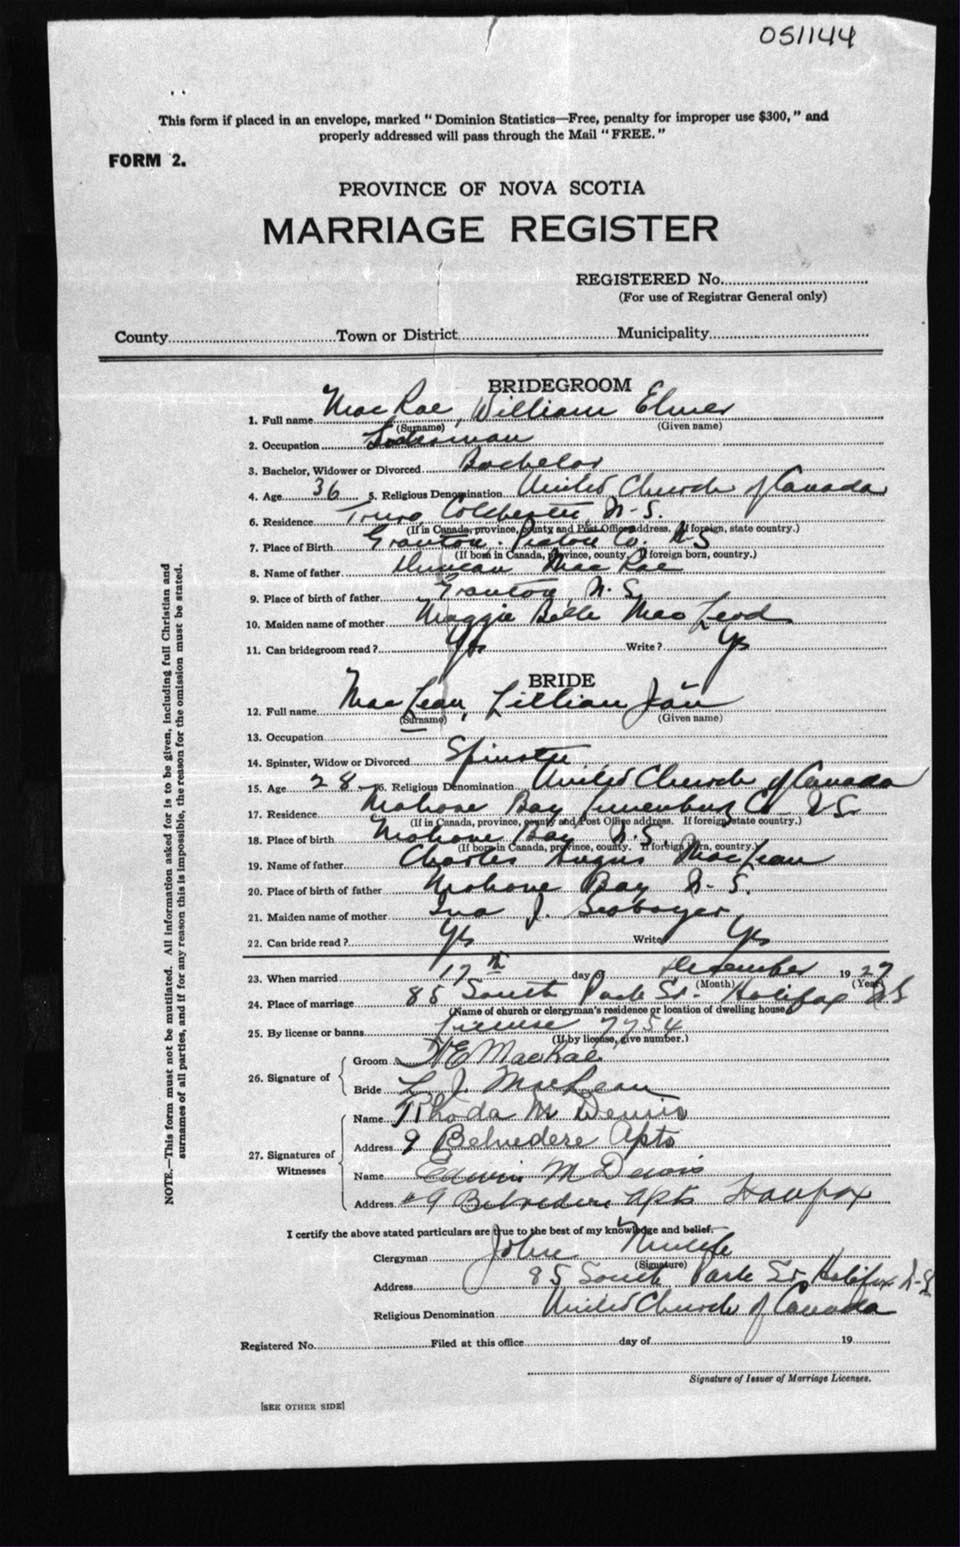 051144
This form if placed in an envelope, marked "Dominion Statistics—Free, penalty for improper use $300," and
properly addressed will pass through the Mail "FREE."
FORM 2.
PROVINCE OF NOVA SCOTIA
MARRIAGE REGISTER
REGISTERED No.
(For use of Registrar General only)
County Town or District Municipality
BRIDEGROOM
1. Full name MacRae, William Elmer
(Surname) (Given name)
2. Occupation
3. Bachelor, Widower or Divorced Bachelor
4. Age 36 5. Religious Denomination United Church of Canada
6. Residence Truro Colchester N.S.
(If in Canada, province, county and Post Office address. If foreign, state country.)
7. Place of Birth Granton. Pictou Co. N S
(If born in Canada, province, county. If foreign born, country.)
8. Name of father Duncan MacRae
9. Place of birth of father Granton, N.S.
10. Maiden name of mother Maggie Belle MacLeod
11. Can bridegroom read? Yes Write? Yes
BRIDE
12. Full name MacLean, Lillian Jean
(Surname) (Given name)
13. Occupation
14. Spinster, Widow or Divorced Spinster
15. Age 28 16. Religious Denomination United Church of Canada
17. Residence Mahone Bay Lunenburg Co N.S.
(If in Canada, province, county and Post Office address. If foreign, state country.)
18. Place of birth Mahone Bay N.S.
(If born in Canada, province, county. If foreign born, country.)
19. Name of father Charles Angus MacLean
20. Place of birth of father Mahone Bay N.S.
21. Maiden name of mother Iva J.
22. Can bride read? Yes Write Yes
23. When married 17th day of December 1927
(Month) (Year)
24. Place of marriage 85 South Park St. Halifax NS
(Name of church or clergyman's residence or location of dwelling house)
25. By license or banns License 7754
(If by license, give number.)
26. Signature of
Groom W E MacRae
Bride L J MacLean
27. Signatures of Witnesses
Name Rhoda M Dewis
Address 9 Belvedere Apts
Name Edwin M Dewis
Address #9 Belvedere Apts Halifax
I certify the above stated particulars are true to the best of my knowledge and belief.
Clergyman John
(Signature)
Address 85 South Park St. Halifax N-S
Religious Denomination United Church of Canada
Registered No. Filed at this office day of 19
Signature of Issuer of Marriage Licenses.
[SEE OTHER SIDE]
NOTE.—This form must not be mutilated. All information asked for is to be given, including full Christian and
surnames of all parties, and if for any reason this is impossible, the reason for the omission must be stated.